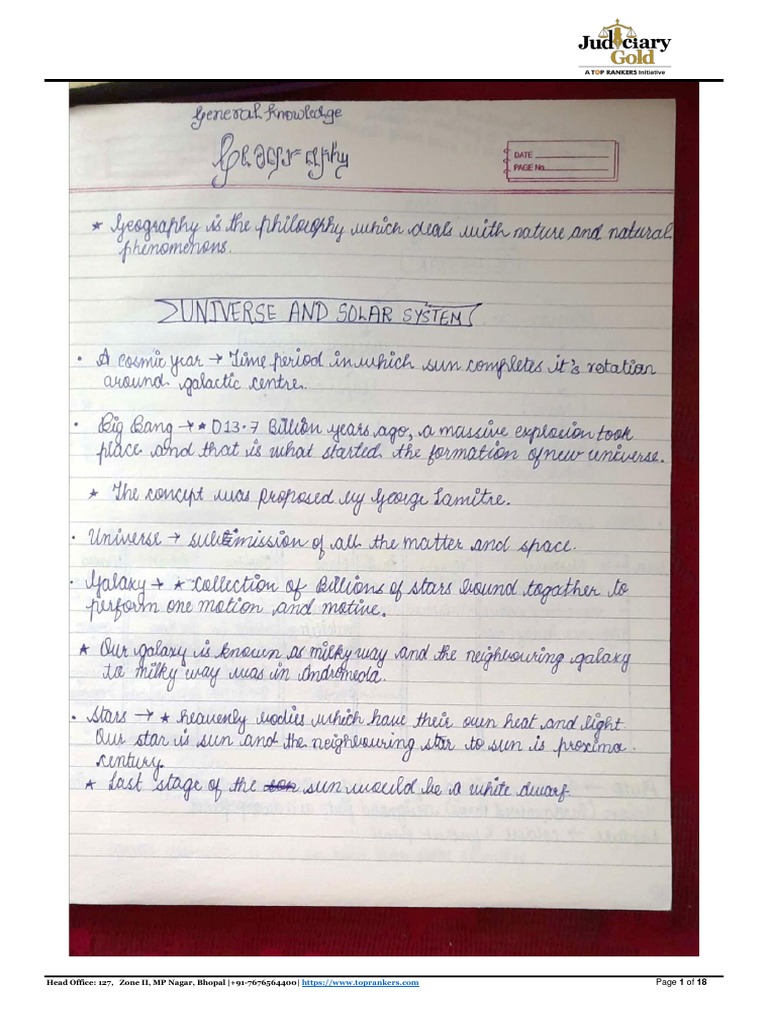 Judiciary
Gold
A TOP RANKERS Initiative
General Knowledge
Geography
DATE
PAGE No.
★ Geography is the philosophy which deals with nature and natural
phenomenons.
UNIVERSE AND SOLAR SYSTEM
• A cosmic year → Time period in which sun completes it's rotation
around galactic centre.
• Big Bang → ★ 013.7 Billion years ago, a massive explosion took
place and that is what started the formation of new universe.
★ The concept was proposed by George Lamitre.
• Universe → submission of all the matter and space.
• Galaxy → ★ collection of Billions of stars bound togather to
perform one motion and motive.
★ Our galaxy is known as milky way and the neighbouring galaxy
to milky way was in Andromeda.
• Stars → ★ heavenly bodies which have their own heat and light.
Our star is sun and the neighbouring star to sun is proxima
century.
★ Last stage of the sun would be a white dwarf.
Head Office: 127, Zone II, MP Nagar, Bhopal |+91-7676564400| https://www.toprankers.com
Page 1 of 18